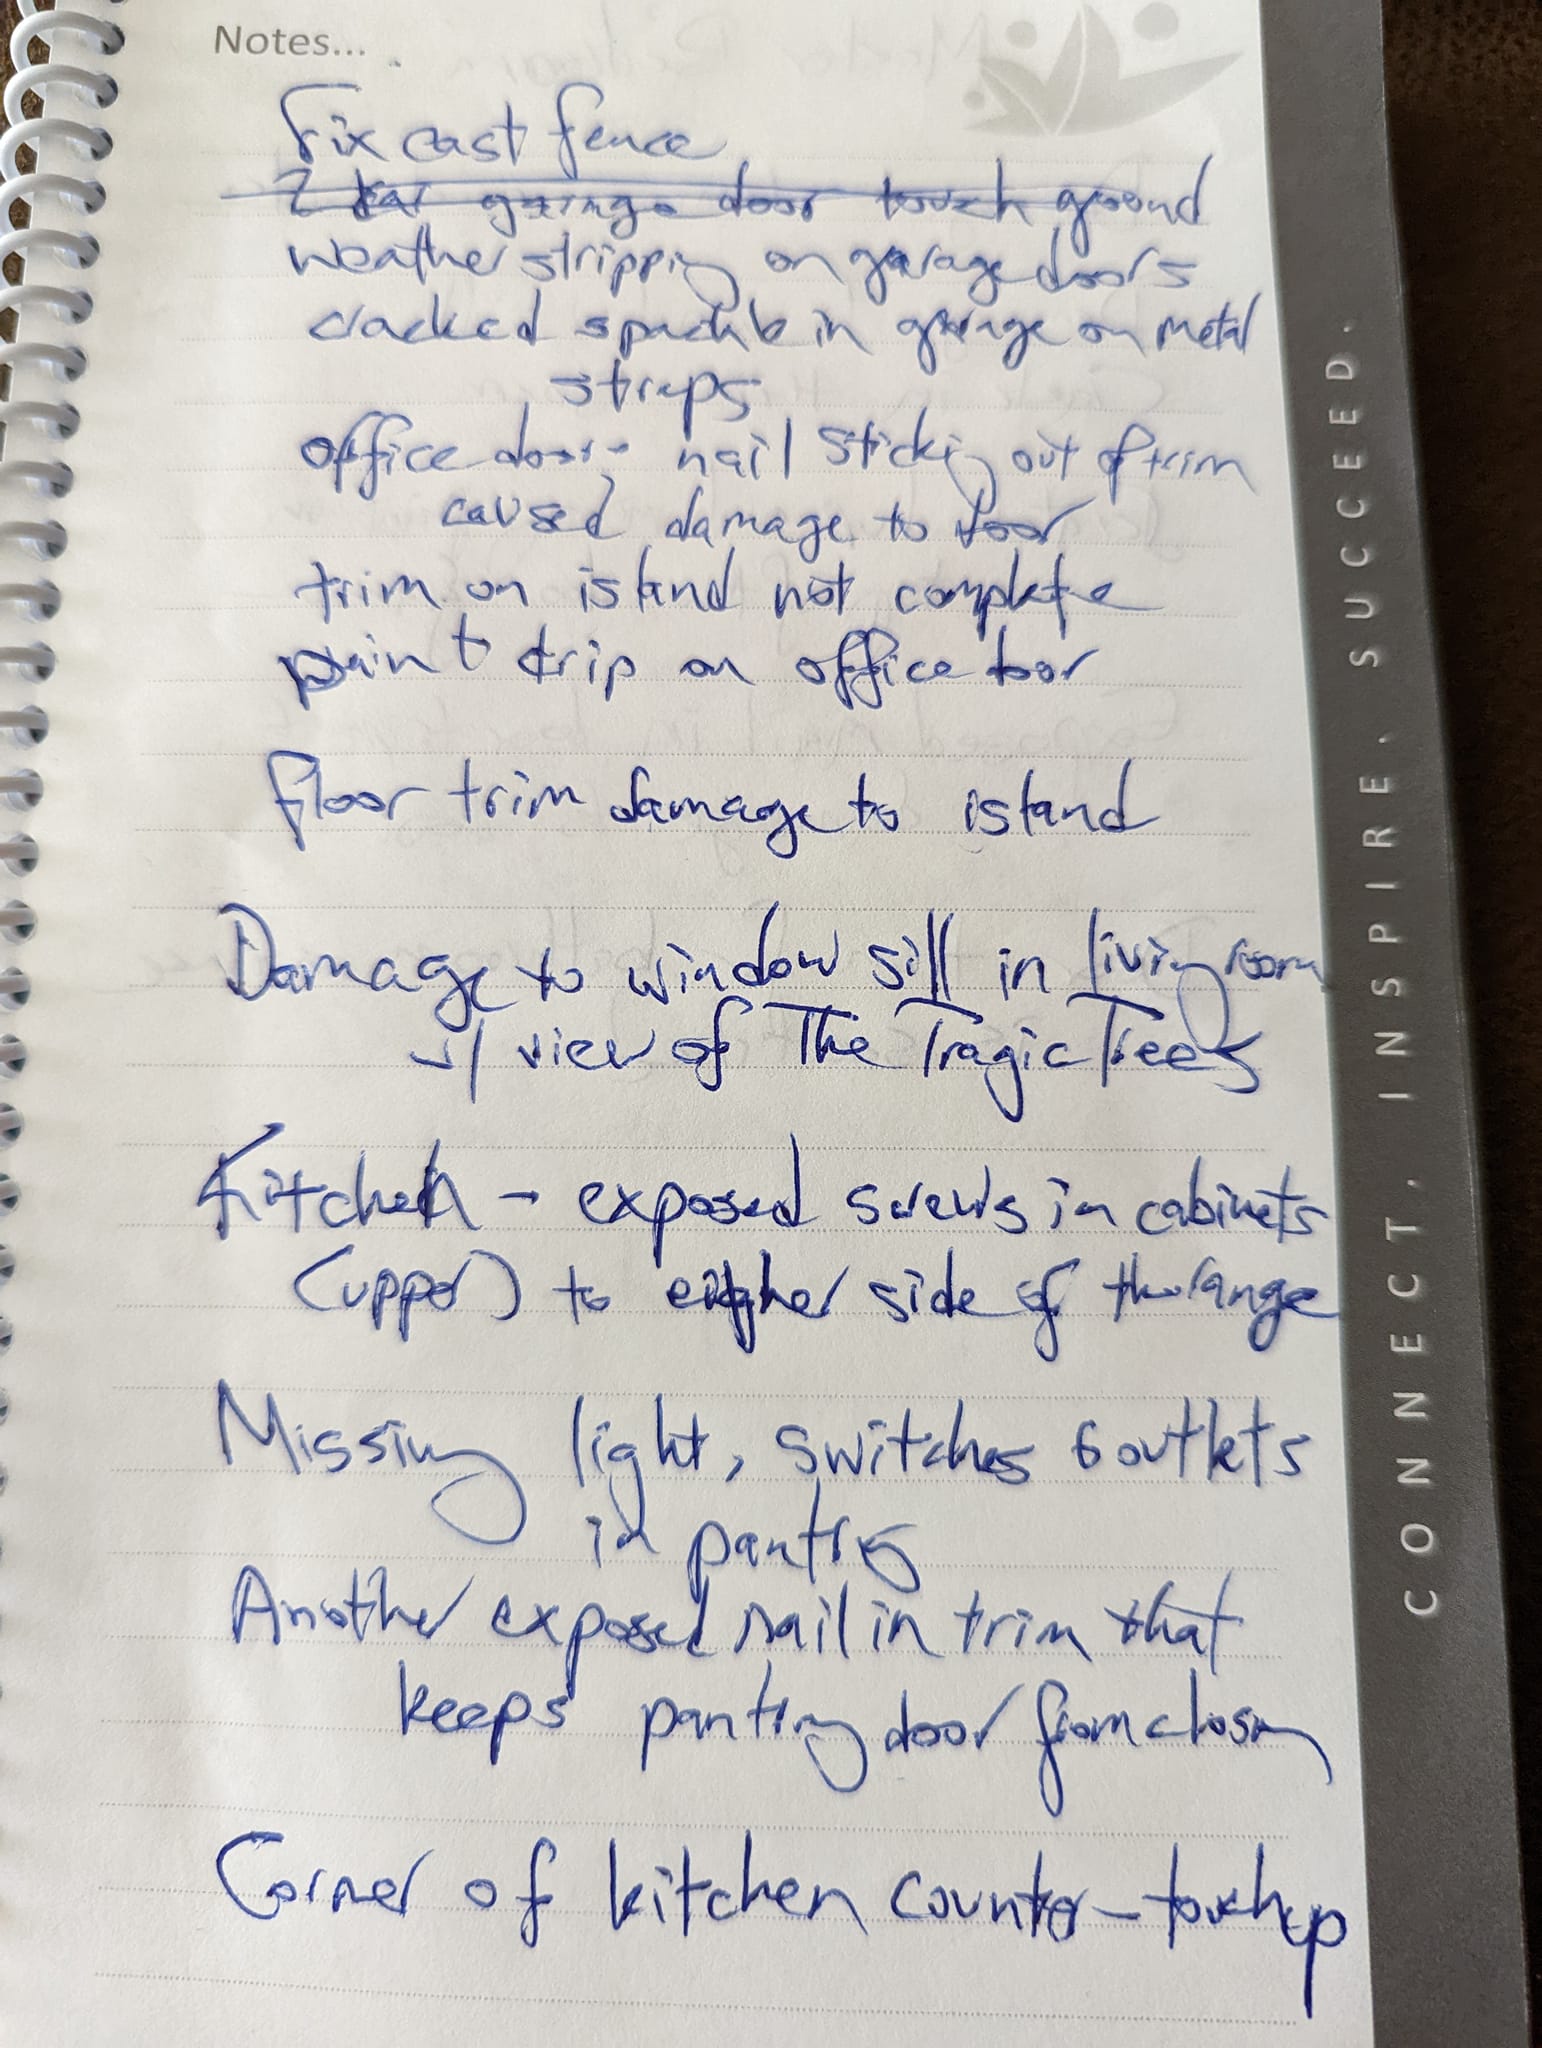 Notes...
Fix east fence
2 car garage door touch ground
weather stripping on garage doors
cracked spackle in garage on metal
straps
office door: nail sticking out of trim
caused damage to door
trim on island not complete
paint drip on office door
floor trim damage to island
Damage to window sill in living room
w/ view of The Tragic Trees
Kitchen - exposed screws in cabinets
(upper) to either side of the range
Missing light, switches & outlets
in pantry
Another exposed nail in trim that
keeps pantry door from closing
Corner of kitchen counter - touch up
CONNECT. INSPIRE. SUCCEED.